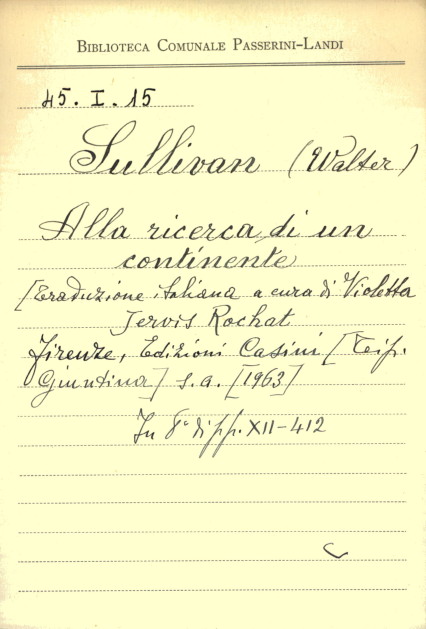 BIBLIOTECA COMUNALE PASSERINI-LANDI
45. I. 15
Sullivan (Walter)
Alla ricerca di un
continente
[Traduzione italiana a cura di Violetta
Jervis Rochat
Firenze, Edizioni Casini [Tip.
Giuntina] s.a. [1963]
In 8° di pp. XII-412